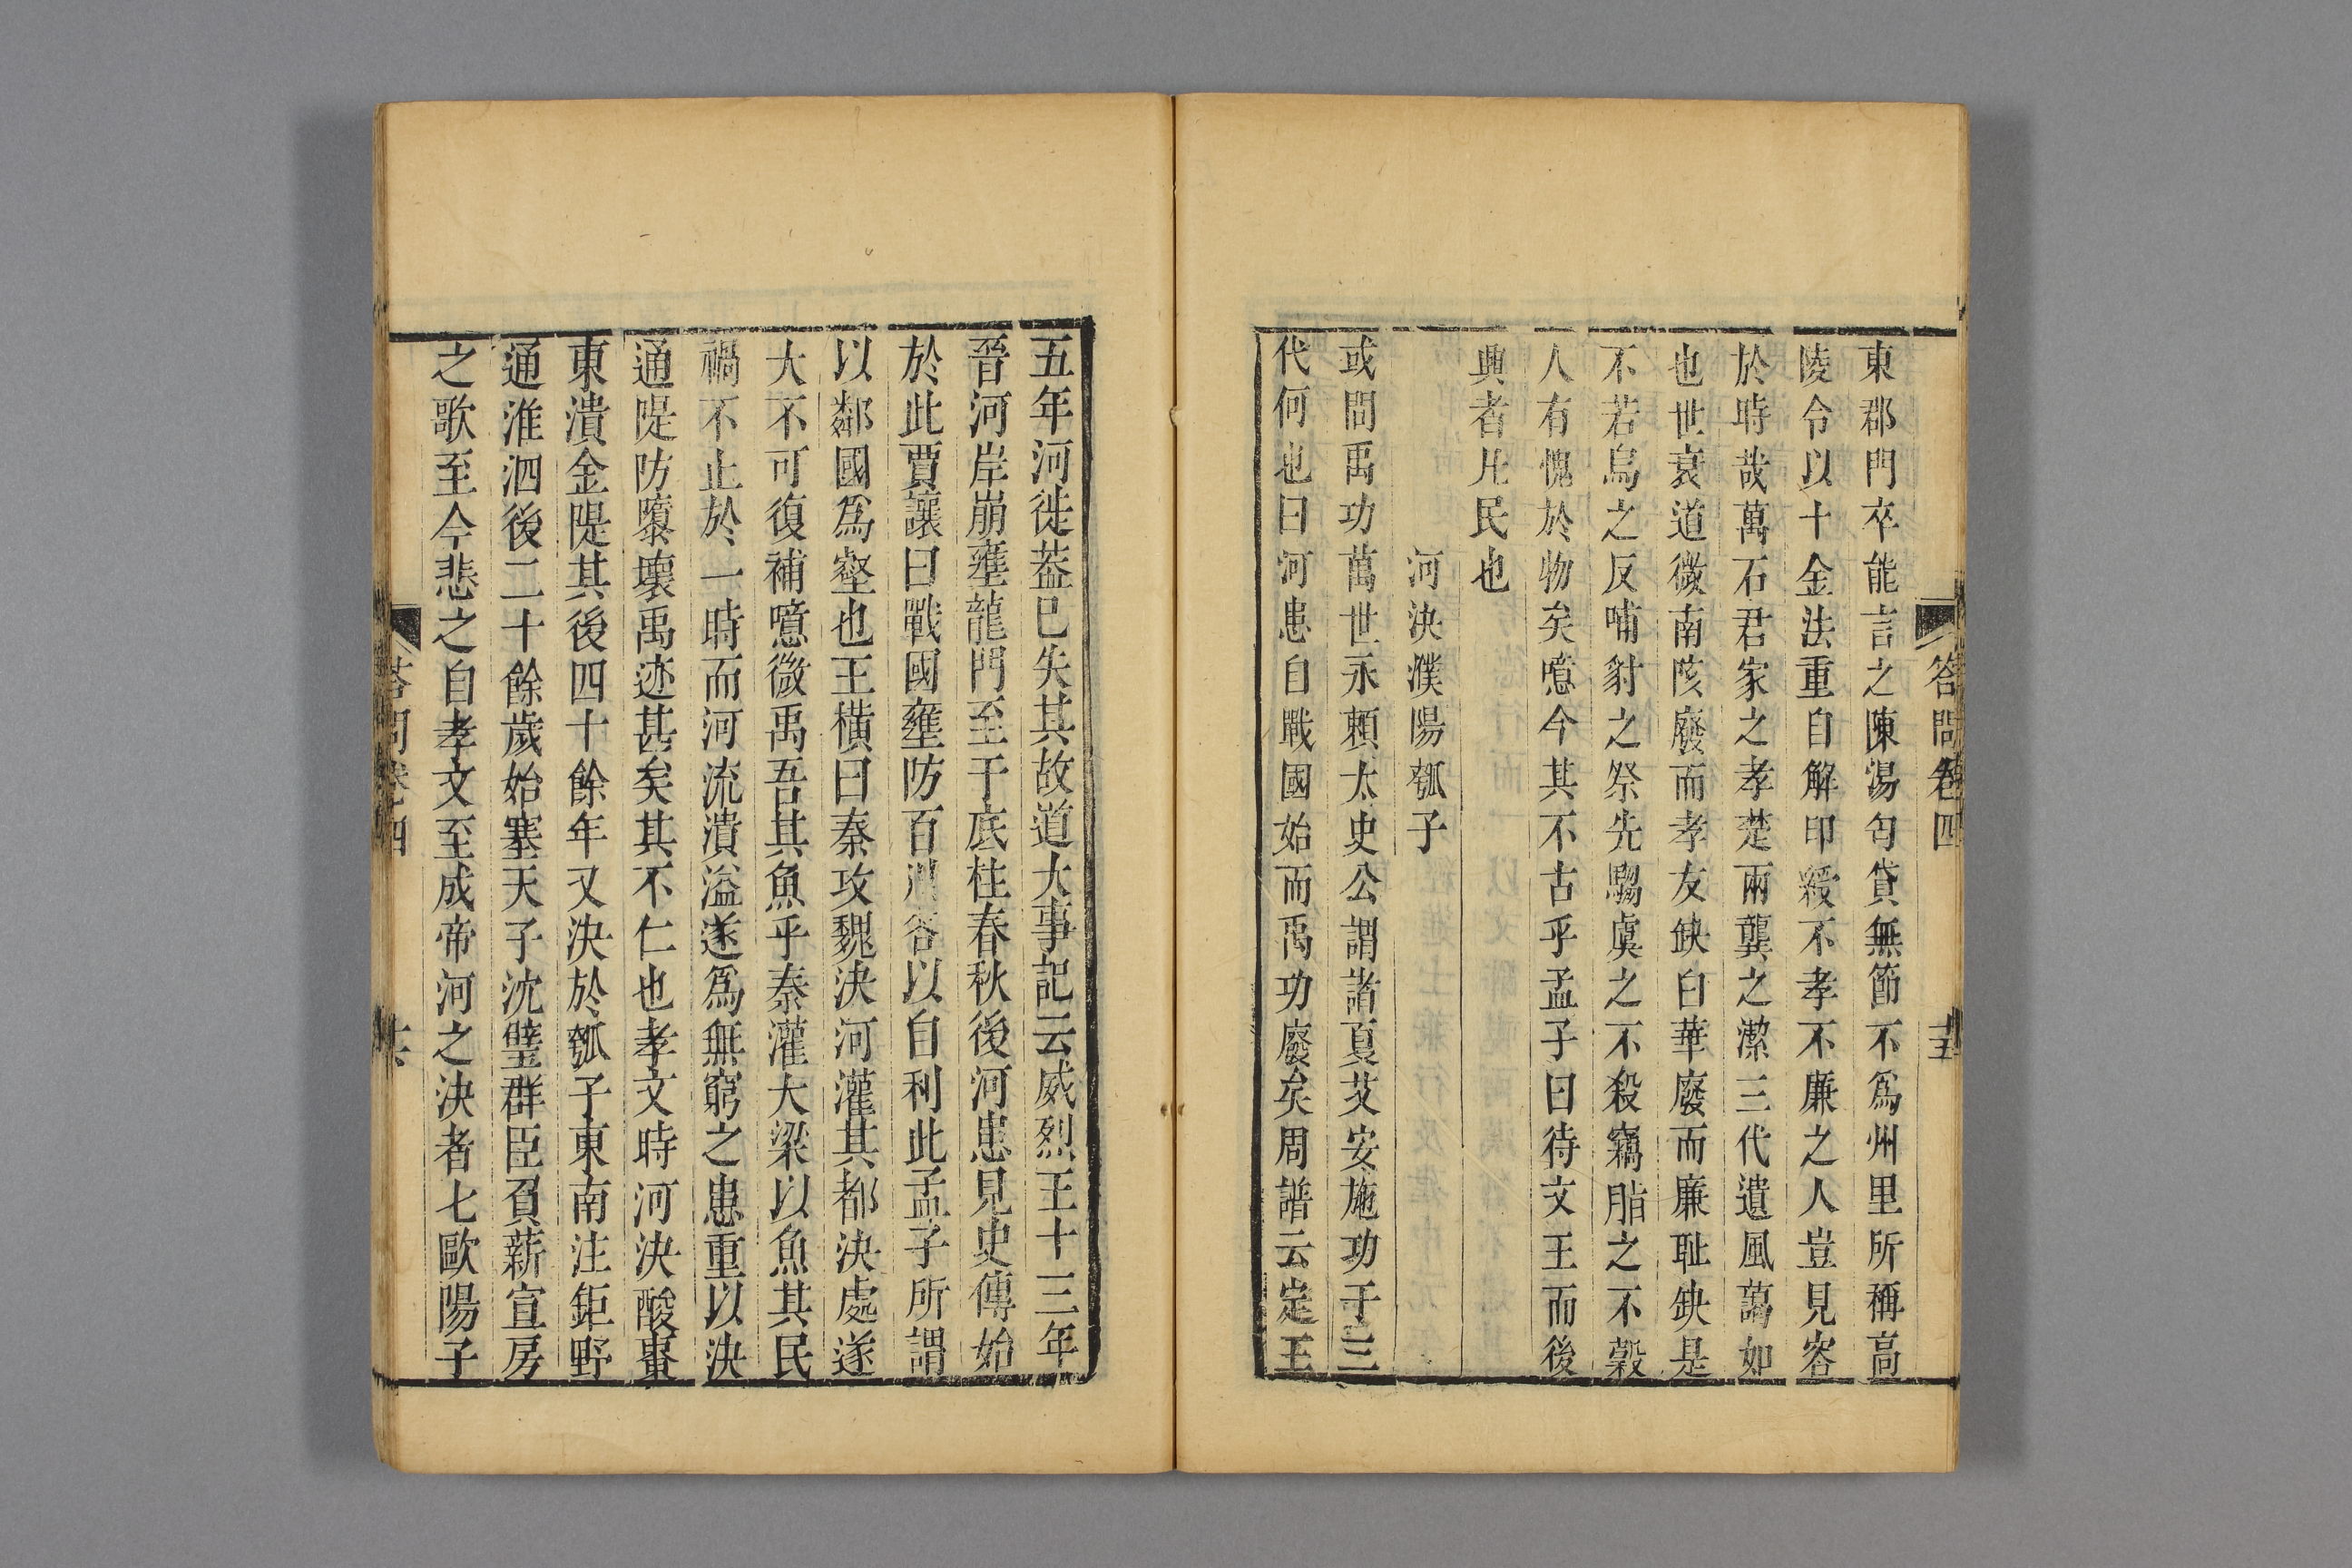 答問卷四
十五
東郡門卒能言之陳湯匄貸無節不爲州里所稱高
陵令以十金法重自解印綬不孝不廉之人豈見容
於時哉萬石君家之孝楚兩龔之潔三代遺風藹如
也世衰道微南陔廢而孝友缺白華廢而廉耻缺是
不若烏之反哺豺之祭先騶虞之不殺竊脂之不穀
人有愧於物矣噫今其不古乎孟子曰待文王而後
興者凡民也
河決濮陽瓠子
或問禹功萬世永頼太史公謂諸夏艾安施功于三
代何也曰河患自戰國始而禹功廢矣周譜云定王
五年河徙葢已失其故道大事記云威烈王十三年
晉河岸崩壅龍門至于底柱春秋後河患見史傳始
於此賈讓曰戰國壅防百川各以自利此孟子所謂
以鄰國爲壑也王橫曰秦攻魏決河灌其都決處遂
大不可復補噫微禹吾其魚乎秦灌大梁以魚其民
禍不止於一時而河流潰溢遂爲無窮之患重以決
通隄防隳壞禹迹甚矣其不仁也孝文時河決酸棗
東潰金隄其後四十餘年又決於瓠子東南注鉅野
通淮泗後二十餘歲始塞天子沈璧群臣負薪宣房
之歌至今悲之自孝文至成帝河之決者七歐陽子
答問卷四